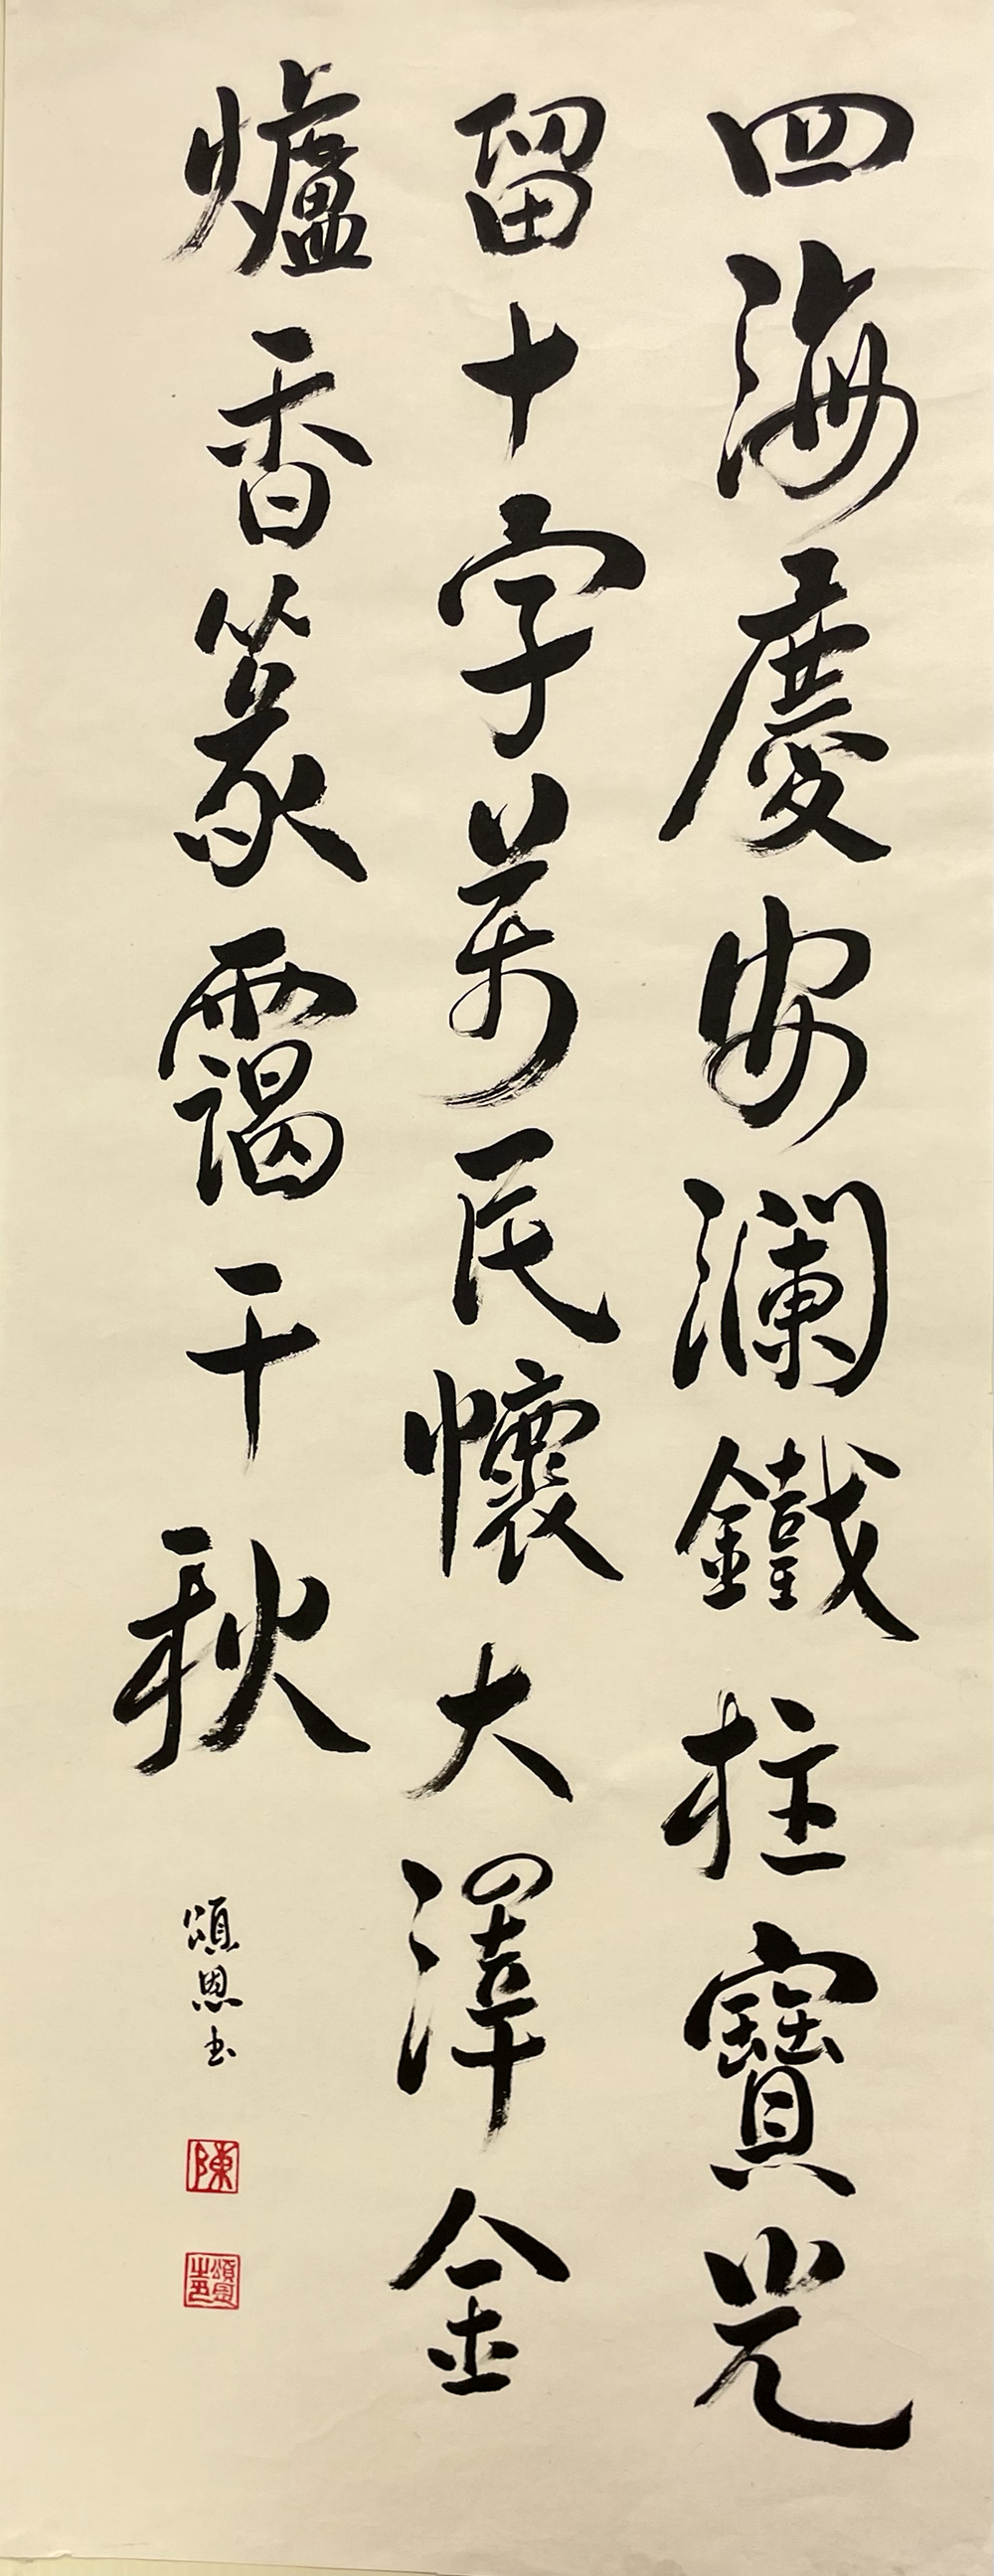 四海慶安瀾鐵柱寶光
留十字萬民懷大澤金
爐香篆靄千秋
頌恩书
陳
頌恩